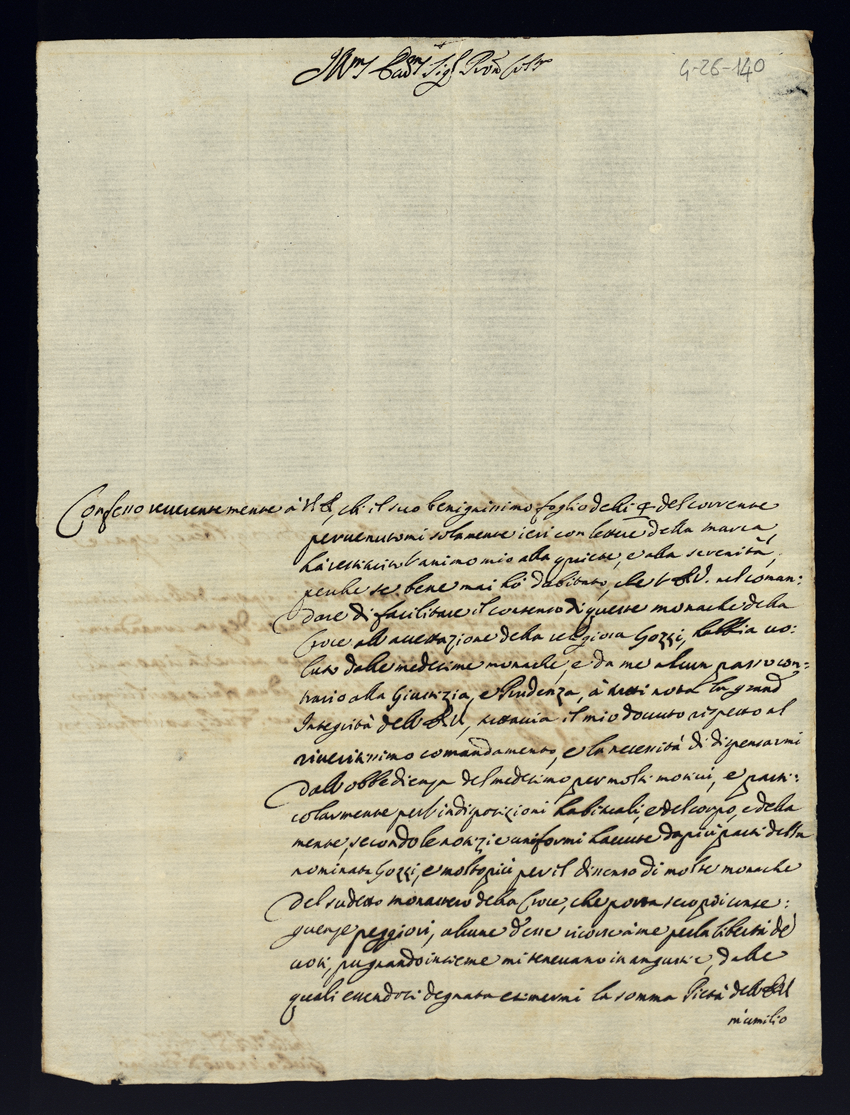 4-26-140
Confesso reverentemente à V.E., che il suo benignissimo foglio delli 4 del corrente
pervenutomi solamente ieri con lettere della marca,
hà restituito l'animo mio alla quiete, e alla serenità,
perche se bene mai hò dubitato, che V.E. nel coman-
dare di facilitare il consenso di queste monache della
Croce all'accettazione della religiosa Gozzi, habbia vo-
luto dalle medesime monache, e da me alcun passo con-
trario alla Giustizia, e Prudenza, à tutti nota la grand
Integrità dell'E.V., tuttavia il mio dovuto rispetto al
riveritissimo comandamento, e la necessità di dispensarmi
dall'obbedienza del medesimo per molti motivi, e parti-
colarmente per l'indisposizioni habituali, e del corpo, e della
mente, secondo le notizie uniformi havute da più parti della
nominata Gozzi, e molto più per il dissenso di molte monache
del sudetto monastero della Croce, che porta seco di conse-
guenze peggiori, alcune d'esse ricorse à me per la libertà de'
voti, pugnando insieme mi tenevano in angustie, dalle
quali essendosi degnata esimermi la somma Pietà dell'E.V.
m'umilio